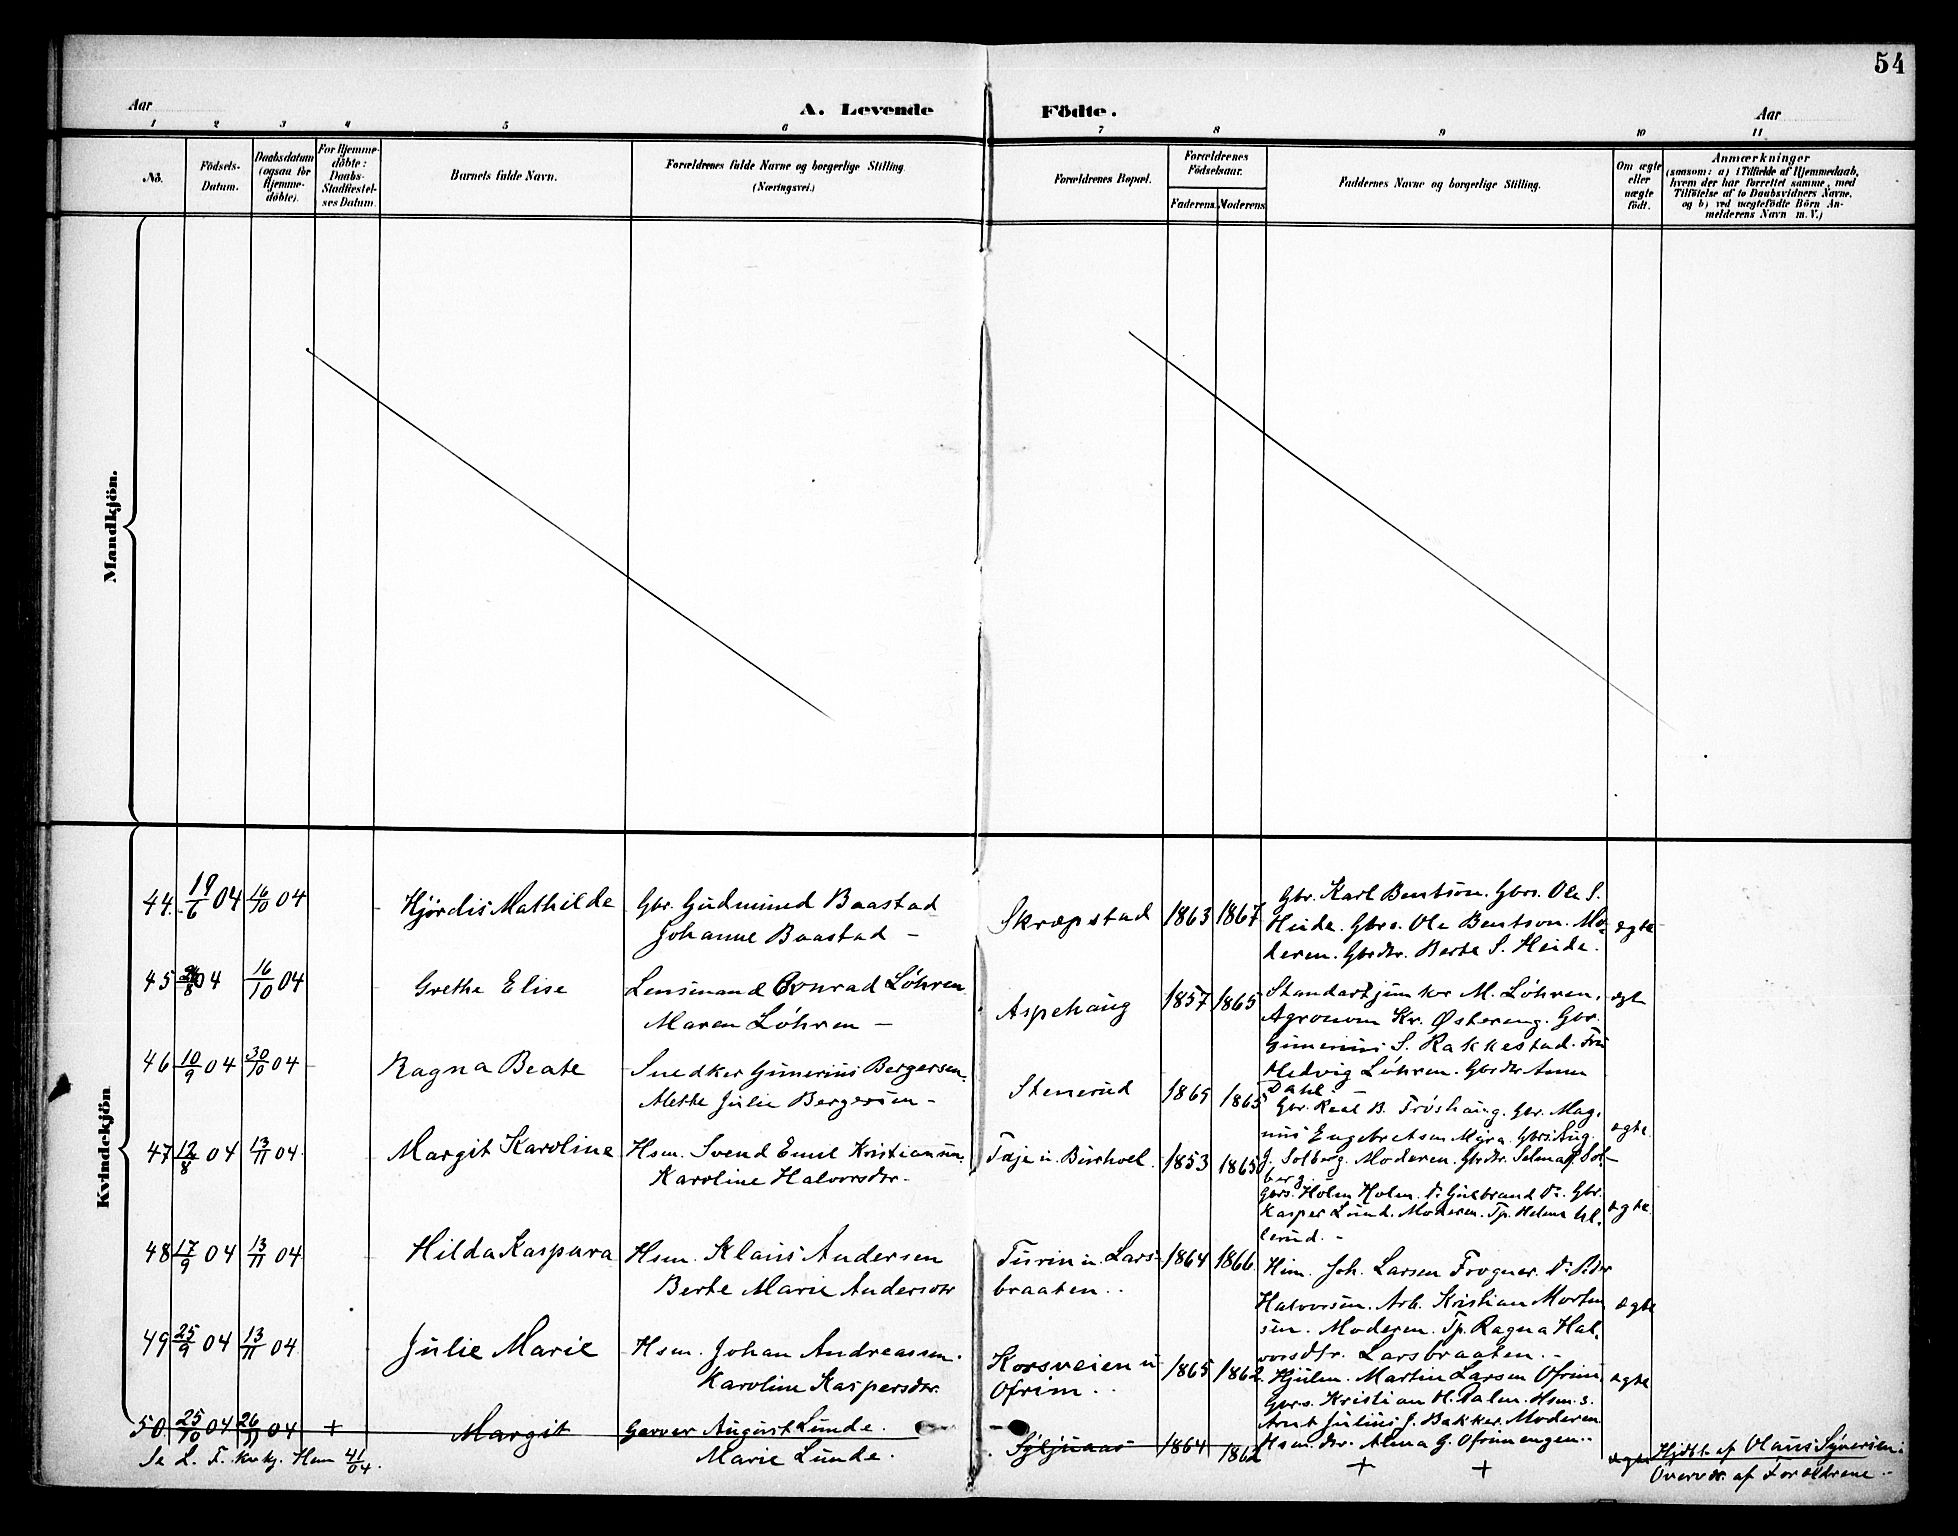 54
Aar
A. Levende Födte.
Aar
1 2 3 4 5 6 7 8 9 10 11
No.
Födsels-Datum.
Daabsdatum (ogsaa for Hjemme-døbte).
For Hjemme-døbte: Daabs-Stadfæstel-ses Datum.
Barnets fulde Navn.
Forældrenes fulde Navne og borgerlige Stilling (Næringsvei.)
Forældrenes Bopæl.
Forældrenes Födselsaar.
Faderens. Moderens.
Faddernes Navne og borgerlige Stilling.
Om ægte eller uægte født.
Anmærkninger
(saasom: a) i Tilfælde af Hjemmedaab,
hvem der har forrettet samme, med
Tilføielse af to Daabsvidners Navne,
og b) ved uægtefødte Börn An-
melderens Navn m. V.)
Mandkjön.
Kvindekjön
44. 19/6 04 16/10 04 Hjördis Mathilde
Gbr. Gudmund Baastad
Johanne Baastad –
Skræpstad 1863 1867
Gbr. Karl Bentson. Gbrs. Ole S.
Heide. Gbrs. Ole Bentson. Mo-
deren. Gbrdtr. Berte S. Heide.
ægte
45 /8 04 16/10 04 Grethe Elise
Lensmand Conrad Löhren
Maren Löhren –
Aspehaug 1857 1865
Standartjunker M. Löhren.
Agronom Kr. Østereng. Gbr.
Gunerius S. Rakkestad. Fru
Hedvig Löhren. Gbrdtr Anna
Dahl. –
ægte
46 10/9 04 30/10 04 Ragna Beate
Snedker Gunerius Bergersen.
Methe Julie Bergersen –
Stenerud 1865 1865
Gbr. Karl B. Fröshaug. Gbr. Mag-
nus Engebretsen Myra. Gbrs. Aug.
J. Solberg. Moderen. Gbrdtr. Selma J. Sol-
berg.
ægte
47 12/8 04 13/11 04. Margit Karoline
Hsm. Svend Emil Kristiansen.
Karoline Halvorsdtr.
Taje u. Burhoel. 1853 1865
Gbrs. Holm Holm. Do Gulbrand Do. Gbr.
Kasper Lund. Moderen. Tp. Helma Ul-
lerud. –
ægte
48 17/9 04 13/11 04 Hilda Kaspara
Hsm. Klaus Andersen
Berte Marie Andersdtr
Turin u. Lars-
braaten. 1864 1866.
Hsm. Joh. Larsen Frogner. Do Peder
Halvorsen. Arb. Kristian Morten-
sen. Moderen. Tp. Ragna Hal-
vorsdtr. Larsbraaten. –
ægte
49 25/9 04 13/11 04 Julie Marie
Hsm. Johan Andreassen.
Karoline Kaspersdtr.
Korsveien u
Ofrim. 1865 1862
Hjulm. Martin Larsen Ofrim
Gbrs. Kristian H. Dalen. Hsm. s.
Arnt Julius J. Bakker. Moderen
Hsm. dtr. Alma G. Ofrimengen.
ægte
50. 25/10 04 26/11 04 + Margit
Garver August Lunde.
Marie Lunde.
1864 1862
+ +
ægte
Hjdbt. af Olaus Syversen.
Overvær. af Forældrene –
Se L. F. Hem 4/ 04.